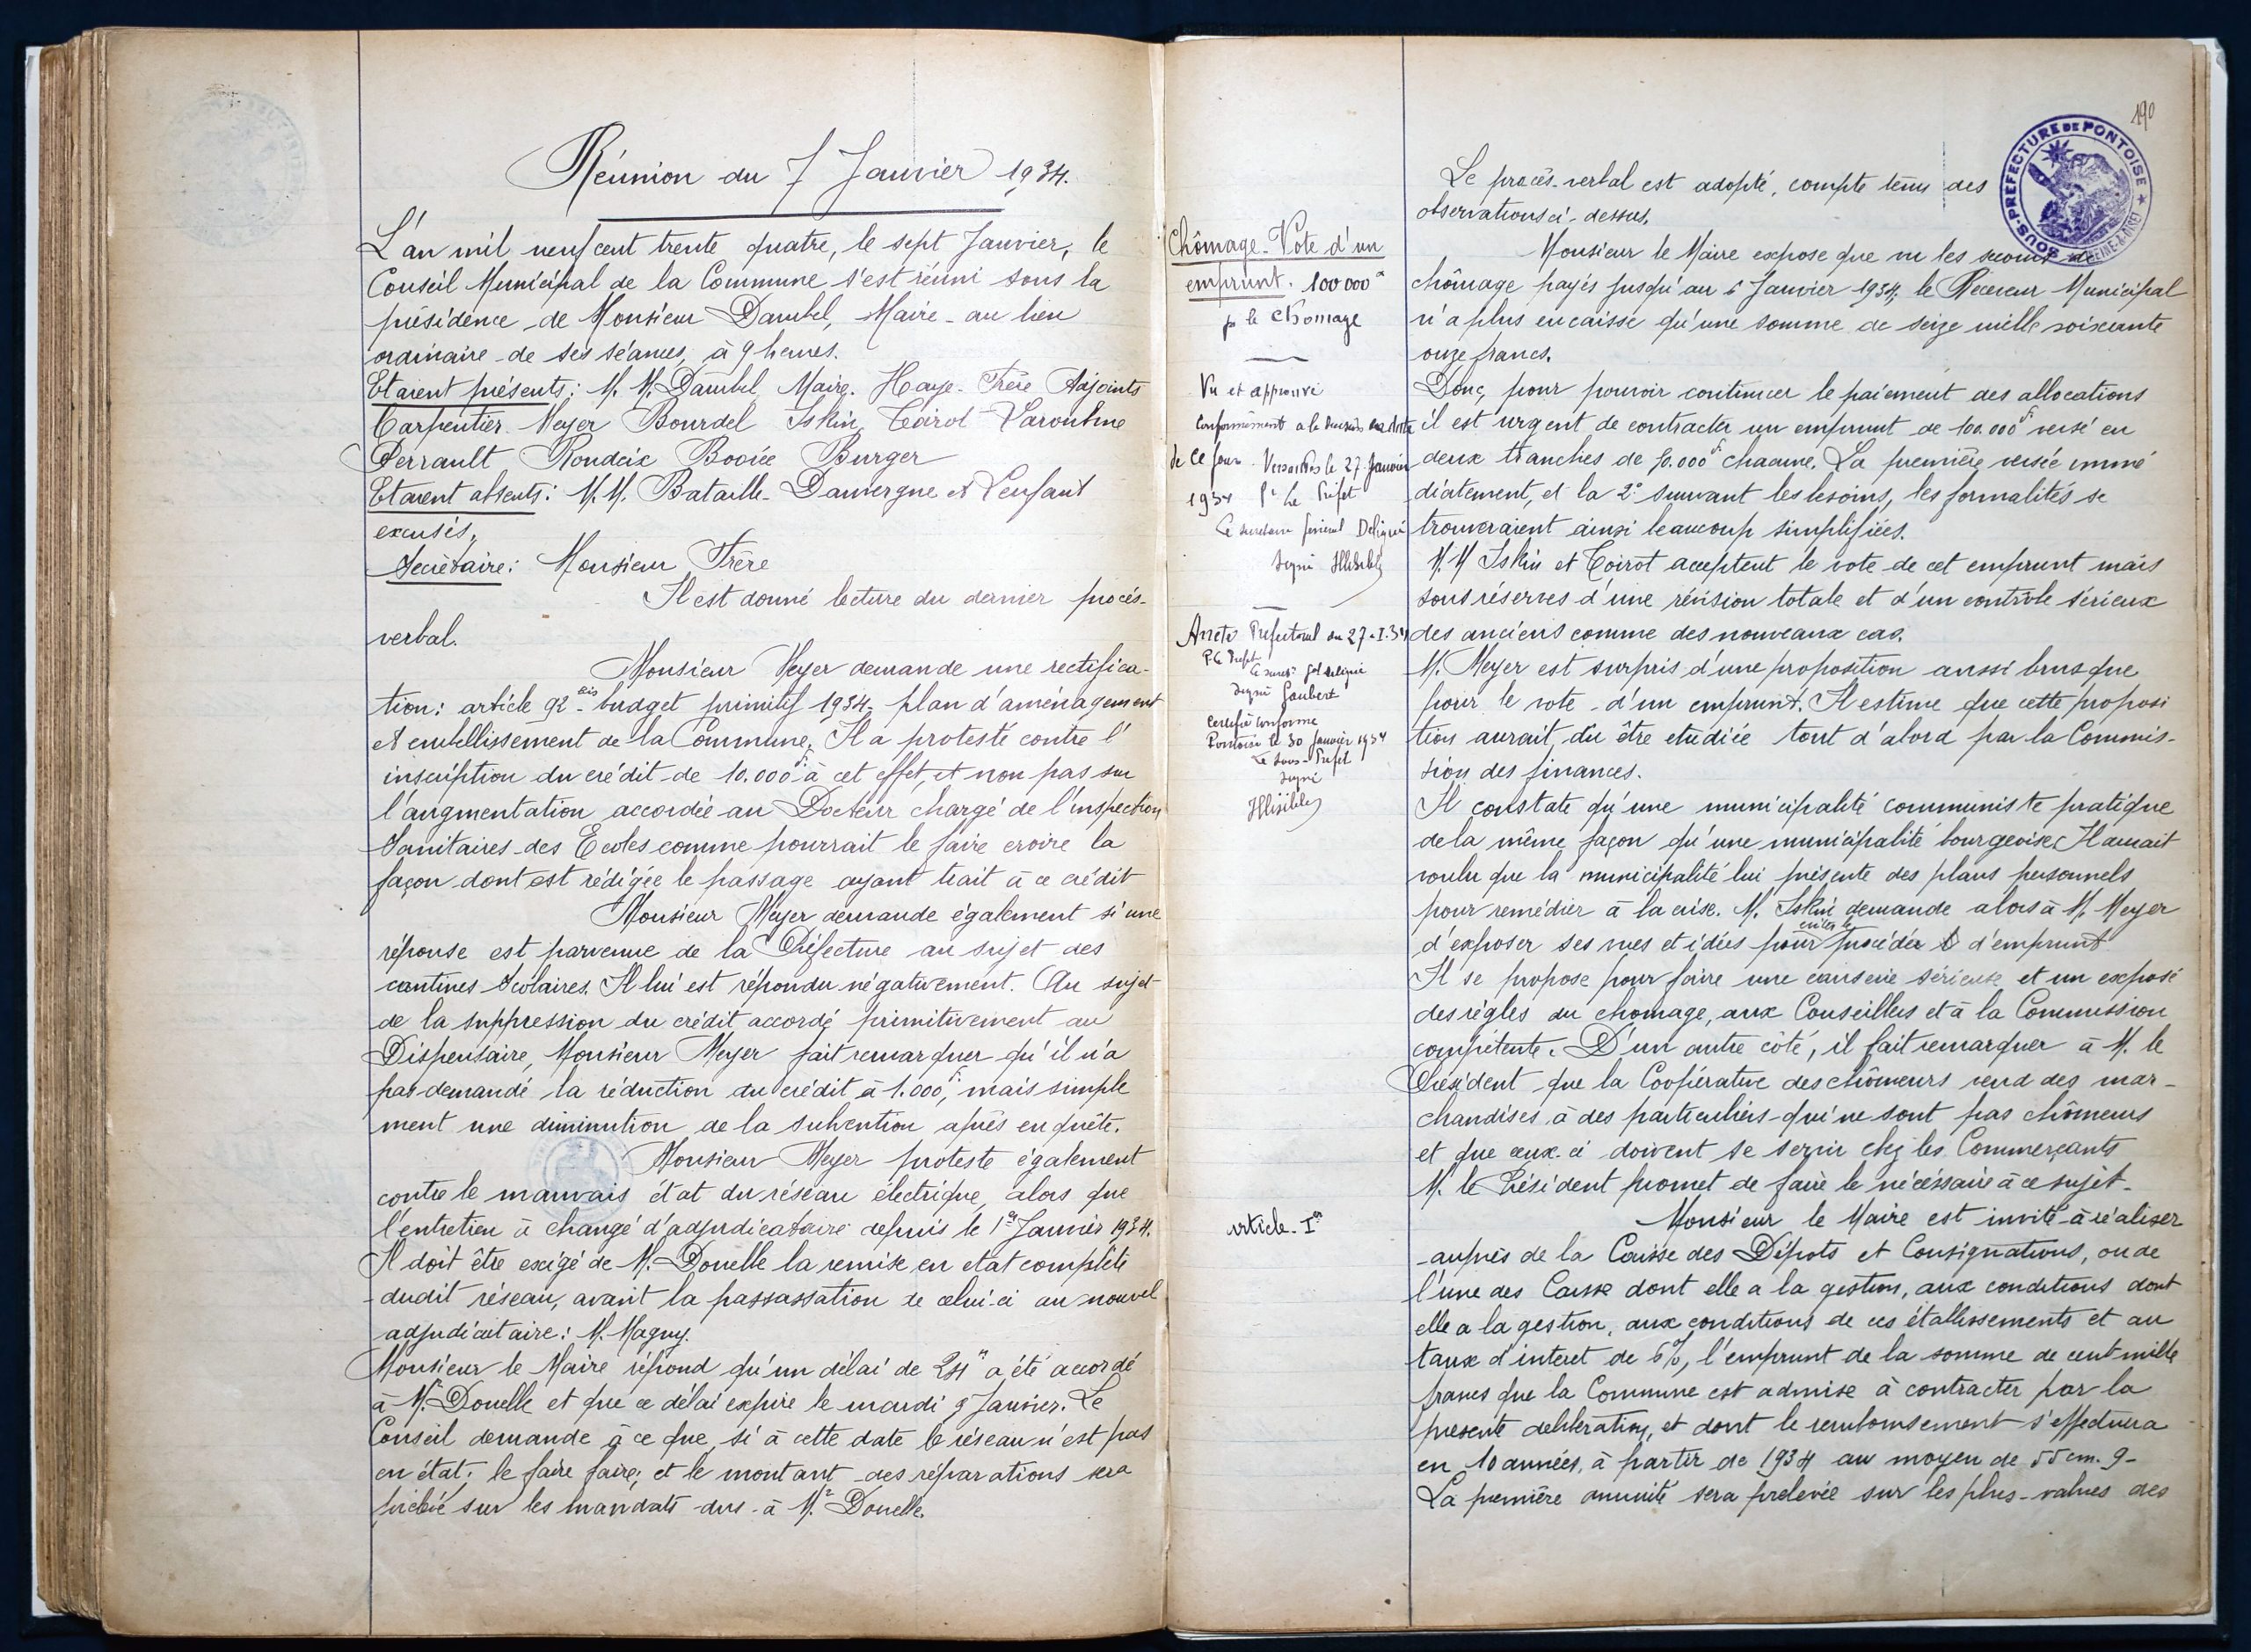 Réunion du 7 Janvier 1934.
L'an mil neuf cent trente quatre, le sept Janvier, le
Conseil Municipal de la Commune s'est réuni sous la
présidence de Monsieur Daubel, Maire - au lieu
ordinaire de ses séances, à 9 heures.
Etaient présents: M.M. Daubel Maire. Haye - Frère Adjoints
Carpentier Meyer Bourdel Iskin Toirot Laroubine
Perrault Rondeix Booiée Burger
Etaient absents: M.M. Bataille - Dauvergne et Lenfant
excusés.
Secrétaire: Monsieur Frère
Il est donné lecture du dernier procès-
verbal.
Monsieur Meyer demande une rectifica-
tion: article 92 bis budget primitif 1934 - plan d'aménagement
et embellissement de la Commune. Il a protesté contre l'
inscription du crédit de 10.000 fr à cet effet, et non pas sur
l'augmentation accordée au Docteur chargé de l'inspection
Sanitaires des Ecoles comme pourrait le faire croire la
façon dont est rédigée le passage ayant trait à ce crédit
Monsieur Meyer demande également si une
réponse est parvenue de la Préfecture au sujet des
cantines Scolaires. Il lui est répondu négativement. Au sujet
de la suppression du crédit accordé primitivement au
Dispensaire, Monsieur Meyer fait remarquer qu'il n'a
pas demandé la réduction du crédit à 1.000 fr, mais simple
ment une diminution de la subvention après enquête.
Monsieur Meyer proteste également
contre le mauvais état du réseau électrique, alors que
l'entretien à changé d'adjudicataire depuis le 1er Janvier 1934.
Il doit être exigé de M. Douelle la remise en état complète
dudit réseau, avant la passassation de celui-ci au nouvel
adjudicataire: M. Magny.
Monsieur le Maire répond qu'un délai de 24 h a été accordé
à Mr. Douelle et que ce délai expire le mardi 9 Janvier. Le
Conseil demande à ce que, si à cette date le réseau n'est pas
en état; le faire faire; et le montant des réparations sera
prélevé sur les mandats dus à Mr. Douelle.
190
SOUS-PREFECTURE DE PONTOISE
SEINE-&-OISE
Le procès-verbal est adopté, compte tenu des
observations ci-dessus.
Chômage - Vote d'un
emprunt. 100000
pr le chomage
Vu et approuvé
Conformément a la décision en date
de ce jour. Versailles le 27 Janvier
1934 Pr Le Préfet
Le secrétaire général Délégué
Signé Illisible
Arrêté Préfectoral du 27-I.34
P. le Préfet
Le secrét. gal délégué
Signé Gaubert
Certifié conforme
Pontoise le 30 Janvier 1934
Le Sous-Préfet
Signé
Illisible
Monsieur le Maire expose que vu les secours de
chômage payés jusqu'au 6 Janvier 1934, le Receveur Municipal
n'a plus en caisse qu'une somme de seize mille soixante
onze francs.
Donc, pour pouvoir continuer le paiement des allocations
il est urgent de contracter un emprunt de 100.000 fr versé en
deux tranches de 50.000 fr chacune. La première versée immé
diatement, et la 2e suivant les besoins, les formalités se
trouveraient ainsi beaucoup simplifiées.
M.M Iskin et Toirot acceptent le vote de cet emprunt mais
sous réserves d'une révision totale et d'un contrôle sérieux
des anciens comme des nouveaux cas.
M. Meyer est surpris d'une proposition aussi brusque
pour le vote d'un emprunt. Il estime que cette proposi
tion aurait, dû être etudiée tout d'abord par la Commis-
sion des finances.
Il constate qu'une municipalité communiste pratique
de la même façon qu'une municipalité bourgeoise. Il aurait
voulu que la municipalité lui présente des plans personnels
pour remédier à la crise. M. Iskin demande alors à M. Meyer
d'exposer ses vues et idées pour éviter le procédée d'emprunt
Il se propose pour faire une causerie sérieuse et un exposé
des règles du chomage, aux Conseillers et à la Commission
compétente. D'un autre côté, il fait remarquer à M. le
Président que la Coopérative des chômeurs vend des mar-
chandises à des particuliers qui ne sont pas chômeurs
et que ceux-ci doivent se servir chez les Commerçants
M. le Président promet de faire le nécéssaire à ce sujet.
article - Ier
Monsieur le Maire est invité à réaliser
auprès de la Caisse des Dépots et Consignations, ou de
l'une des Caisse dont elle a la gestion, aux conditions dont
elle a la gestion, aux conditions de ces établissements et au
taux d'interet de 6%, l'emprunt de la somme de cent mille
francs que la Commune est admise à contracter par la
presente deliberation, et dont le remboursement s'effectuera
en 10 années, à partir de 1934 au moyen de 55 cm. 9-
La première annuité sera prelevée sur les plus-values des